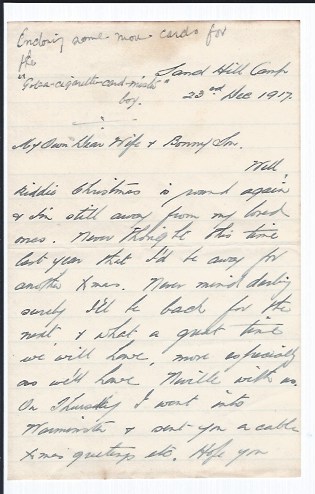 Enclosing some more cards for
the
"Got-a-cigarette-card-mister"
boy.
Sand Hill Camp
23rd Dec 1917.
My Own Dear Wife & Bonny Son.
Well
kiddie Christmas is round again
& I'm still away from my loved
ones. Never thought this time
last year that I'd be away for
another Xmas. Never mind darling
surely I'll be back for the
next & what a great time
we will have, more especially
as we'll have Neville with us.
On Thursday I went into
Warminster & sent you a cable
Xmas greetings etc. Hope you